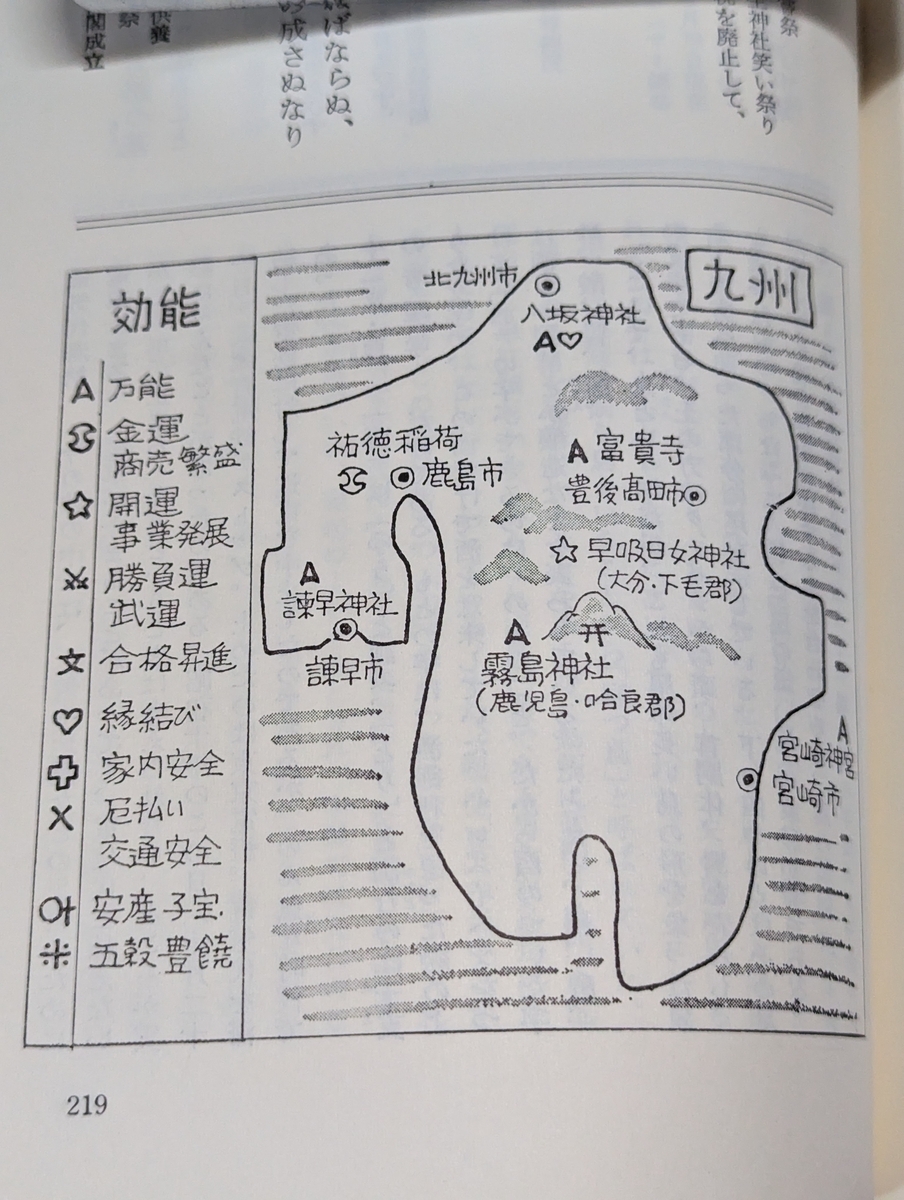 神社笑い祭り
を廃止して、
ばならぬ、
成さぬなり
供養
祭
開成立
九州
北九州市
八坂神社
A♡
祐徳稲荷
鹿島市
A 富貴寺
豊後高田市
☆ 早吸日女神社
(大分・下毛郡)
A
諫早神社
諫早市
A
霧島神社
(鹿児島・哈良郡)
A
宮崎神宮
宮崎市
効能
A 万能
金運
商売繁盛
☆ 開運
事業発展
勝負運
武運
文 合格昇進
♡ 縁結び
家内安全
× 厄払い
交通安全
安産子宝
※ 五穀豊饒
219